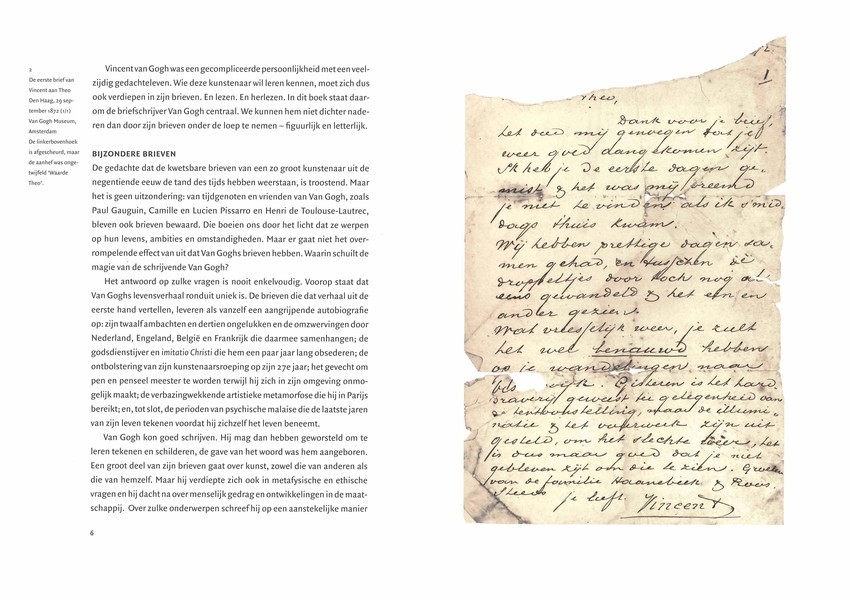 2
De eerste brief van
Vincent aan Theo
Den Haag, 29 sep-
tember 1872 (1/1)
Van Gogh Museum,
Amsterdam
De linkerbovenhoek
is afgescheurd, maar
de aanhef was onge-
twijfeld ‘Waarde
Theo’.
Vincent van Gogh was een gecompliceerde persoonlijkheid met een veel-
zijdig gedachteleven. Wie deze kunstenaar wil leren kennen, moet zich dus
ook verdiepen in zijn brieven. En lezen. En herlezen. In dit boek staat daar-
om de briefschrijver Van Gogh centraal. We kunnen hem niet dichter nade-
ren dan door zijn brieven onder de loep te nemen – figuurlijk en letterlijk.
BIJZONDERE BRIEVEN
De gedachte dat de kwetsbare brieven van een zo groot kunstenaar uit de
negentiende eeuw de tand des tijds hebben weerstaan, is troostend. Maar
het is geen uitzondering: van tijdgenoten en vrienden van Van Gogh, zoals
Paul Gauguin, Camille en Lucien Pissarro en Henri de Toulouse-Lautrec,
bleven ook brieven bewaard. Die boeien ons door het licht dat ze werpen
op hun levens, ambities en omstandigheden. Maar er gaat niet het over-
rompelende effect van uit dat Van Goghs brieven hebben. Waarin schuilt de
magie van de schrijvende Van Gogh?
Het antwoord op zulke vragen is nooit enkelvoudig. Voorop staat dat
Van Goghs levensverhaal ronduit uniek is. De brieven die dat verhaal uit de
eerste hand vertellen, leveren als vanzelf een aangrijpende autobiografie
op: zijn twaalf ambachten en dertien ongelukken en de omzwervingen door
Nederland, Engeland, België en Frankrijk die daarmee samenhangen; de
godsdienstijver en imitatio Christi die hem een paar jaar lang obsedeer; de
ontbolstering van zijn kunstenaarsroeping op zijn 27e jaar; het gevecht om
pen en penseel meester te worden terwijl hij zich in zijn omgeving onmo-
gelijk maakt; de verbazingwekkende artistieke metamorfose die hij in Parijs
bereikt; en, tot slot, de perioden van psychische malaise die de laatste jaren
van zijn leven tekenen voordat hij zichzelf het leven beneemt.
Van Gogh kon goed schrijven. Hij mag dan hebben geworsteld om te
leren tekenen en schilderen, de gave van het woord was hem aangeboren.
Een groot deel van zijn brieven gaat over kunst, zowel die van anderen als
die van hemzelf. Maar hij verdiepte zich ook in metafysische en ethische
vragen en hij dacht na over menselijk gedrag en ontwikkelingen in de maat-
schappij. Over zulke onderwerpen schreef hij op een aanstekelijke manier
6
1
Theo,
Dank voor je brief,
het deed mij genoegen dat je
weer goed aangekomen zijt.
Ik heb je de eerste dagen ge-
mist & het was mij vreemd
je niet te vinden als ik s'mid-
dags thuis kwam.
Wij hebben prettige dagen sa-
men gehad, en tusschen de
druppeltjes door toch nog al
eens gewandeld & het een en
ander gezien.
Wat vreesselijk weer, je zult
het wel benauwd hebben
op je wandelingen naar
wijk. Gisteren is het hard-
draverij geweest ter gelegenheid van
de tentoonstelling, maar de illumi-
natie & het vuurwerk zijn uit
gesteld, om het slechte weer, het
is dus maar goed dat je niet
gebleven zijt om die te zien. Groeten
van de familie Haanebeek & Roos.
Steeds
je liefh.
Vincent